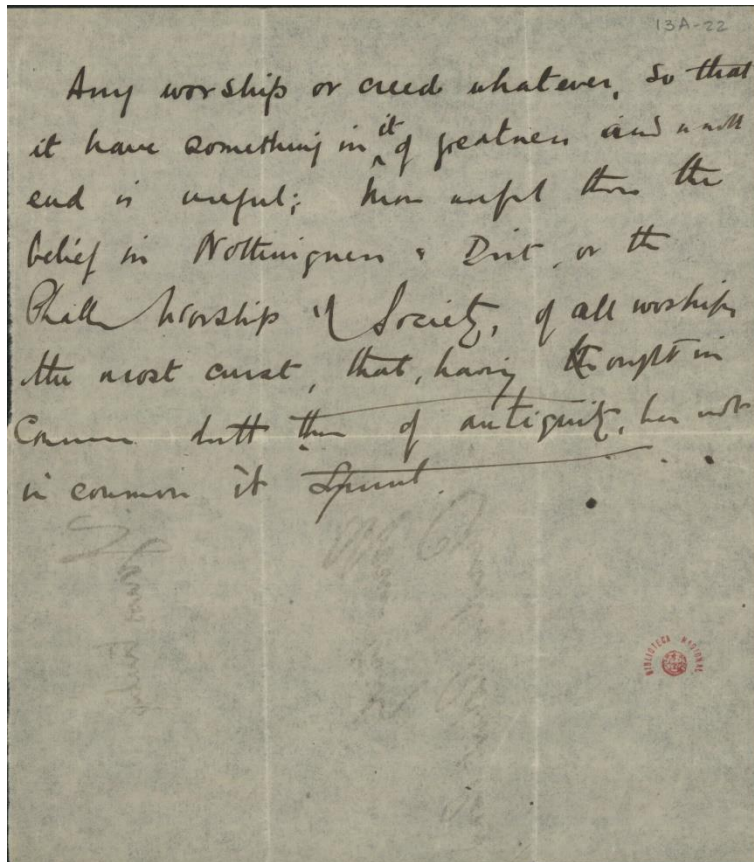 13A-22
Any worship or creed whatever, so that
it have something in it of greatness and a noble
end is useful; more useful than the
belief in Nothingness & Dirt, or the
Phallic Worship of Society, of all worships
the most curst, that, having in
common of antiquity, has not
in common its spirit.
BIBLIOTECA NACIONAL